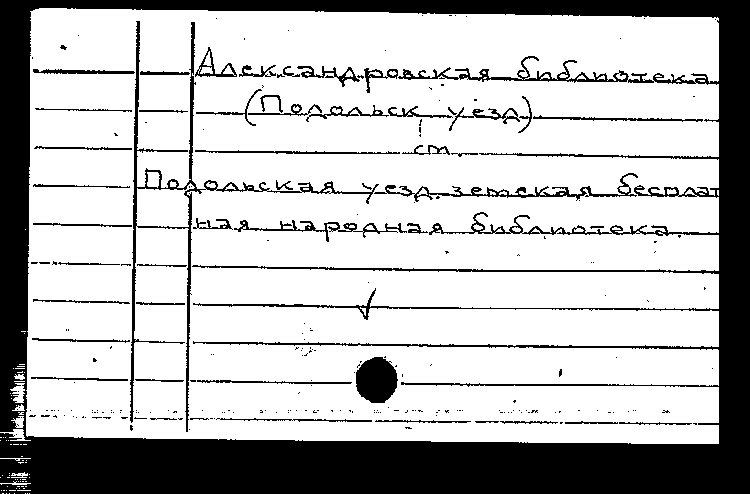 Александровская библиотека
(Подольск. уезд)
см.
Подольская уезд. земская бесплат
ная народная библиотека.